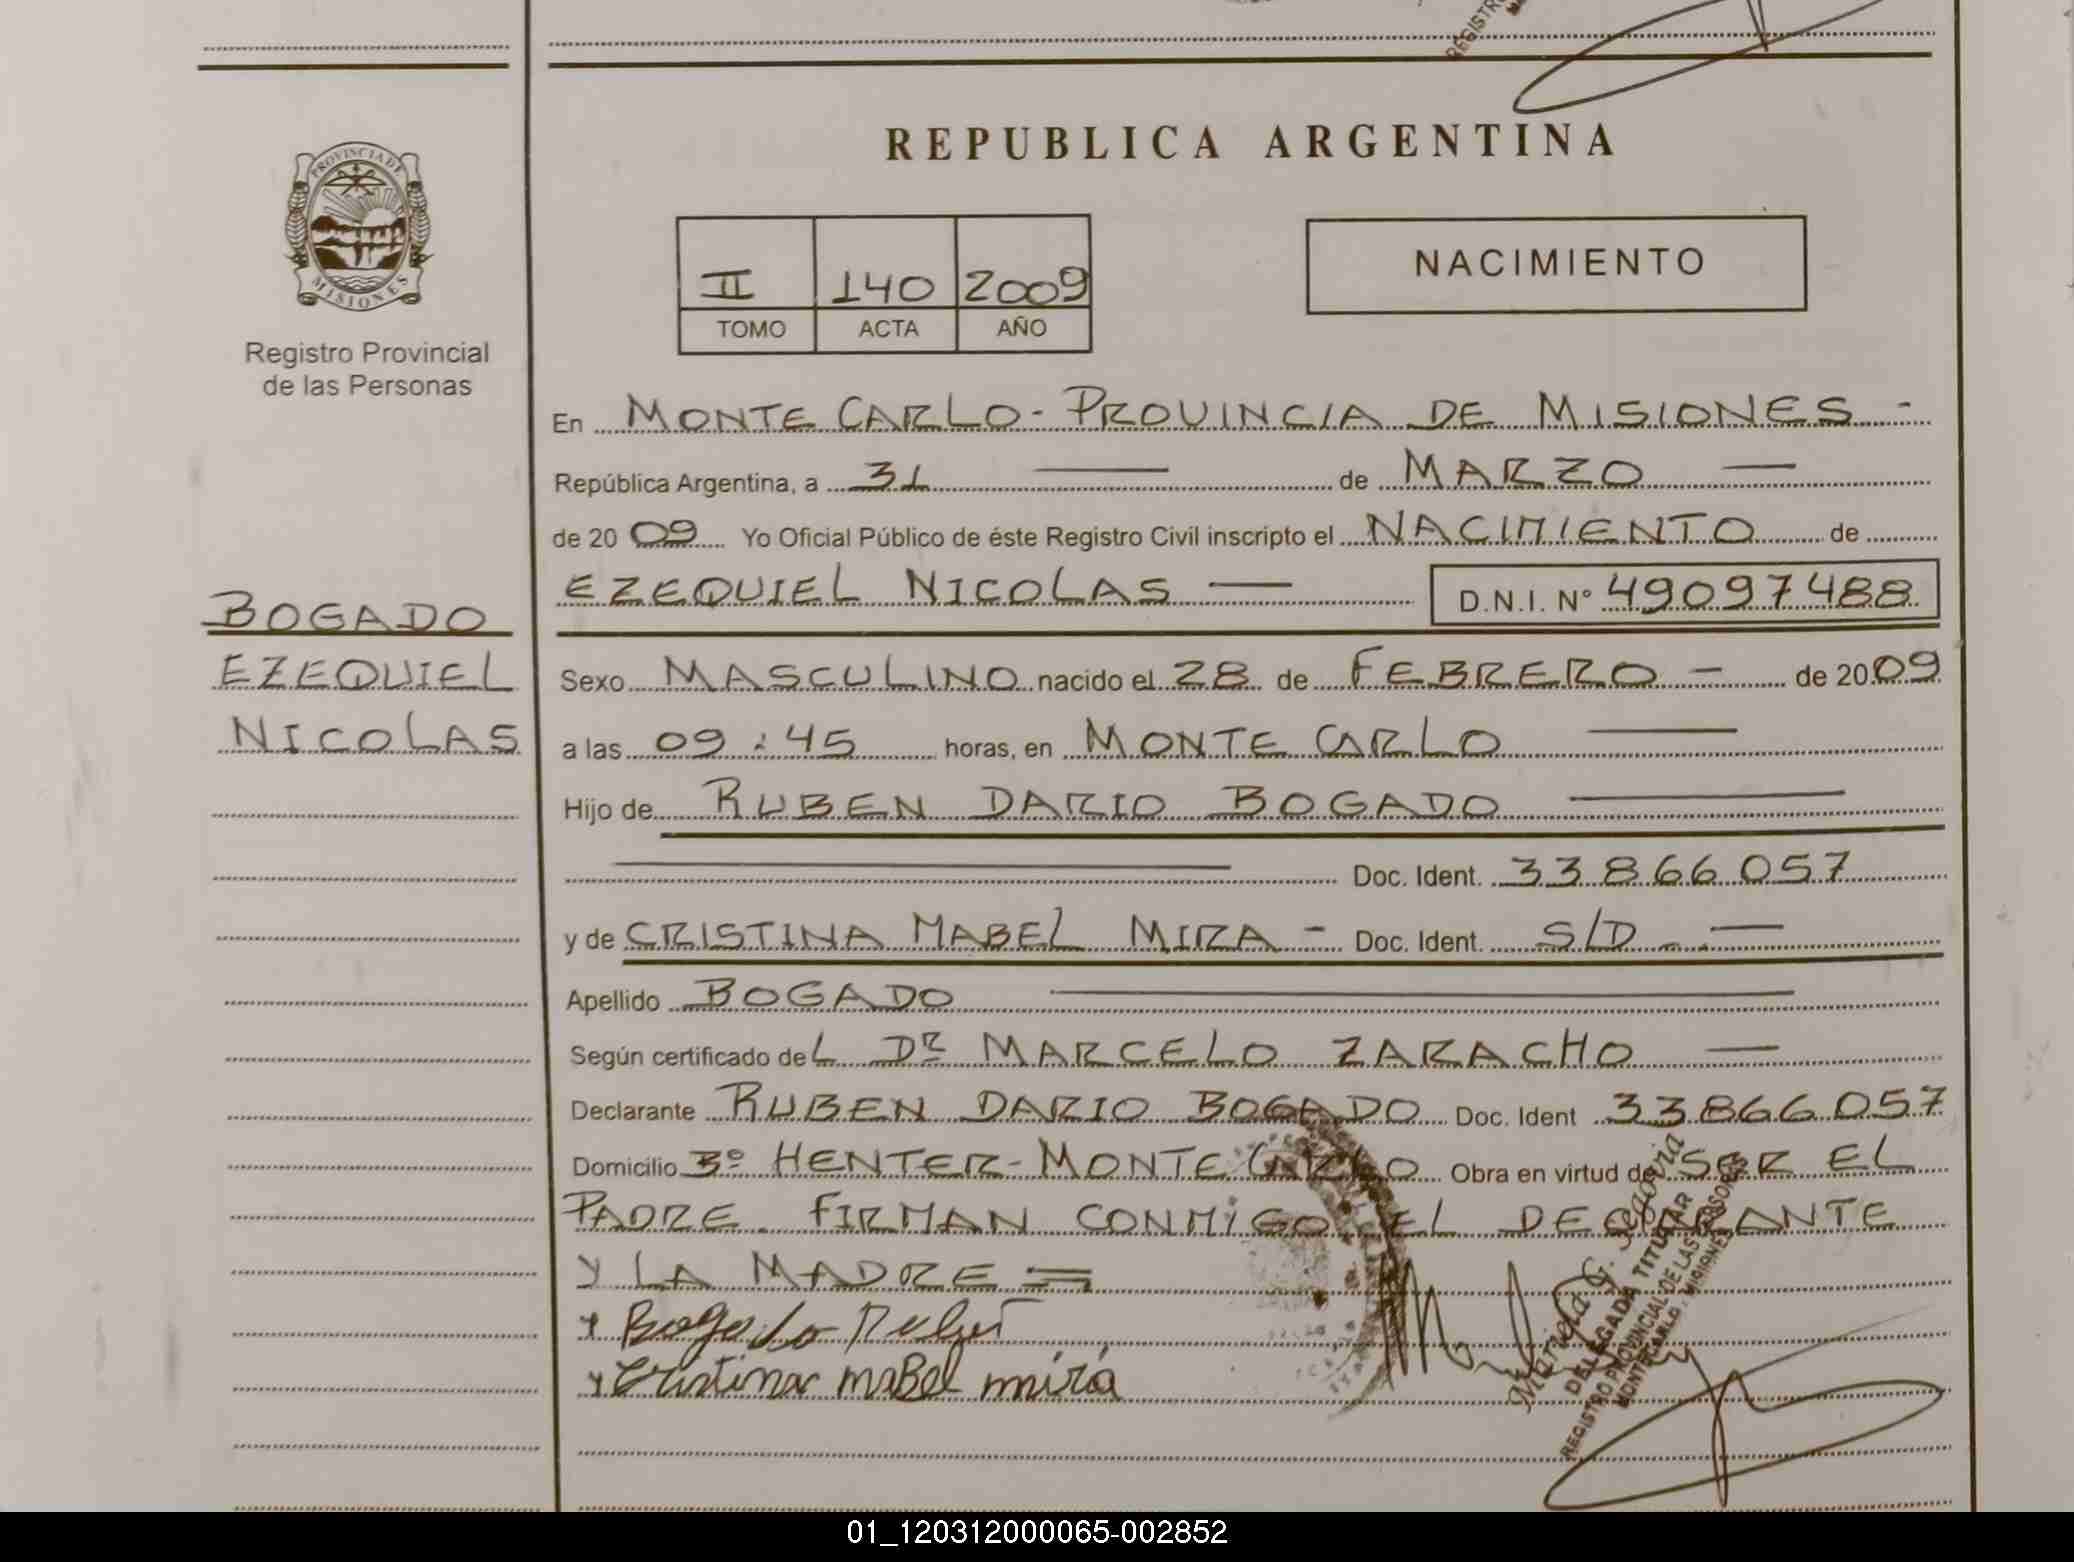 REGISTRO
REPUBLICA ARGENTINA
PROVINCIA DE
MISIONES
Registro Provincial
de las Personas
II 140 2009
TOMO ACTA AÑO
NACIMIENTO
En MONTE CARLO - PROVINCIA DE MISIONES -
República Argentina, a 31 — de MARZO —
de 2009 Yo Oficial Público de éste Registro Civil inscripto el NACIMIENTO de
EZEQUIEL NICOLAS — D.N.I. N° 49097488
BOGADO
EZEQUIEL
NICOLAS
Sexo MASCULINO nacido el 28 de FEBRERO - de 2009
a las 09:45 horas, en MONTE CARLO —
Hijo de RUBEN DARIO BOGADO —
— Doc. Ident. 33866057
y de CRISTINA MABEL MIRA - Doc. Ident. S/D. —
Apellido BOGADO —
Según certificado deL Dr MARCELO ZARACHO —
Declarante RUBEN DARIO BOGADO Doc. Ident 33866057
Domicilio Bº HENTER - MONTE CARLO Obra en virtud de SER EL
PADRE. FIRMAN CONMIGO EL DECLARANTE
Y LA MADRE =
x Bogado
x Cristina maBel mira
Mariela G. Segovia
DELEGADA TITULAR
REGISTRO PROVINCIAL DE LAS PERSONAS
MONTECARLO - MISIONES
01_120312000065-002852